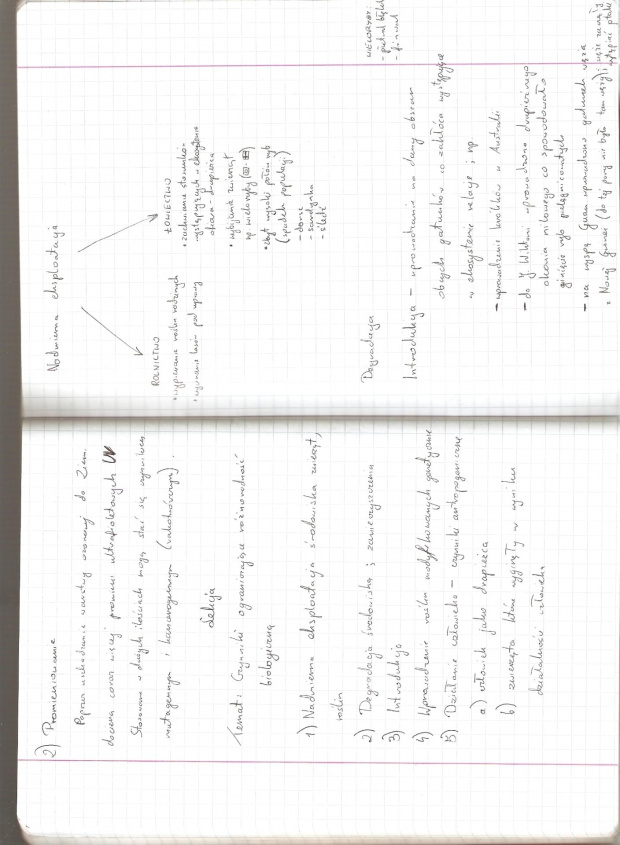 2) Promieniowanie
Poprzez uszkodzenie warstwy ozonowej do Ziemi
dociera coraz więcej promieni ultrafioletowych UV
Stosowane w dużych ilościach mogą stać się czynnikiem
mutagennym i kancerogennym (rakotwórczym).
Lekcja
Temat: Czynniki ograniczające różnorodność
biologiczną
1) Nadmierna eksploatacja środowiska zwierząt,
roślin
2) Degradacja środowiska i zanieczyszczenia
3) Introdukcja
4) Wprowadzenie roślin modyfikowanych genetycznie
5) Działanie człowieka – czynniki antropogeniczne
a) człowiek jako drapieżca
b) zwierzęta które wyginęły w wyniku
działalności człowieka
Nadmierna eksploatacja
ROLNICTWO
• wypieranie roślin rodzimych
• wycinanie lasów pod uprawy
ŁOWIECTWO
• zachwianie stosunków
występujących w ekosystemie
ofiara - drapieżca
• wybijanie zwierząt
np wieloryby
• zbyt wysoki połów ryb
(spadek populacji)
- dorsz
- sardynka
- śledź
WIELORYBY:
- płetwal błękitny
- finwal
Degradacja
Introdukcja – wprowadzanie na dany obszar
obcych gatunków co zakłóca występujące
w ekosystemie relacje; np
- wprowadzenie królików w Australii
- do J. Wiktorii wprowadzono drapieżnego
okonia nilowego co spowodowało
ginięcie ryb pielęgnicowatych
- na wyspę Guam wprowadzono gatunek węża
z Nowej Gwinei (do tej pory nie było tam węży) węże zaczęły
wytępiać ptaki